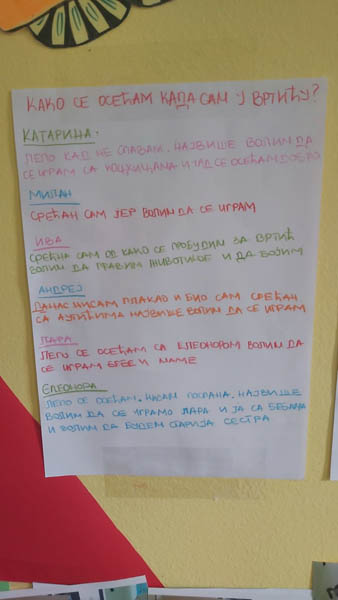 КАКО СЕ ОСЕЋАМ КАДА САМ У ВРТИЋУ?
КАТАРИНА.
ЛЕПО КАД НЕ СПАВАМ. НАЈВИШЕ ВОЛИМ ДА
СЕ ИГРАМ СА КОЦКИЦАМА И ТАД СЕ ОСЕЋАМ ДОБРО
МИЛАН
СРЕЋАН САМ ЈЕР ВОЛИМ ДА СЕ ИГРАМ
ИВА
СРЕЋНА САМ ОД КАКО СЕ ПРОБУДИМ ЗА ВРТИЋ
ВОЛИМ ДА ПРАВИМ ЖИВОТИЊЕ И ДА БОЈИМ
АНДРЕЈ
ДАНАС НИСАМ ПЛАКАО И БИО САМ СРЕЋАН
СА АУТИЋИМА НАЈВИШЕ ВОЛИМ ДА СЕ ИГРАМ
ЛАРА
ЛЕПО СЕ ОСЕЋАМ СА ЕЛЕОНОРОМ ВОЛИМ ДА
СЕ ИГРАМ БЕБЕ И МАМЕ
ЕЛЕОНОРА
ЛЕПО СЕ ОСЕЋАМ. НИСАМ ПОСПАНА. НАЈВИШЕ
ВОЛИМ ДА СЕ ИГРАМО ЛАРА И ЈА СА БЕБАМА
И ВОЛИМ ДА БУДЕМ СТАРИЈА СЕСТРА